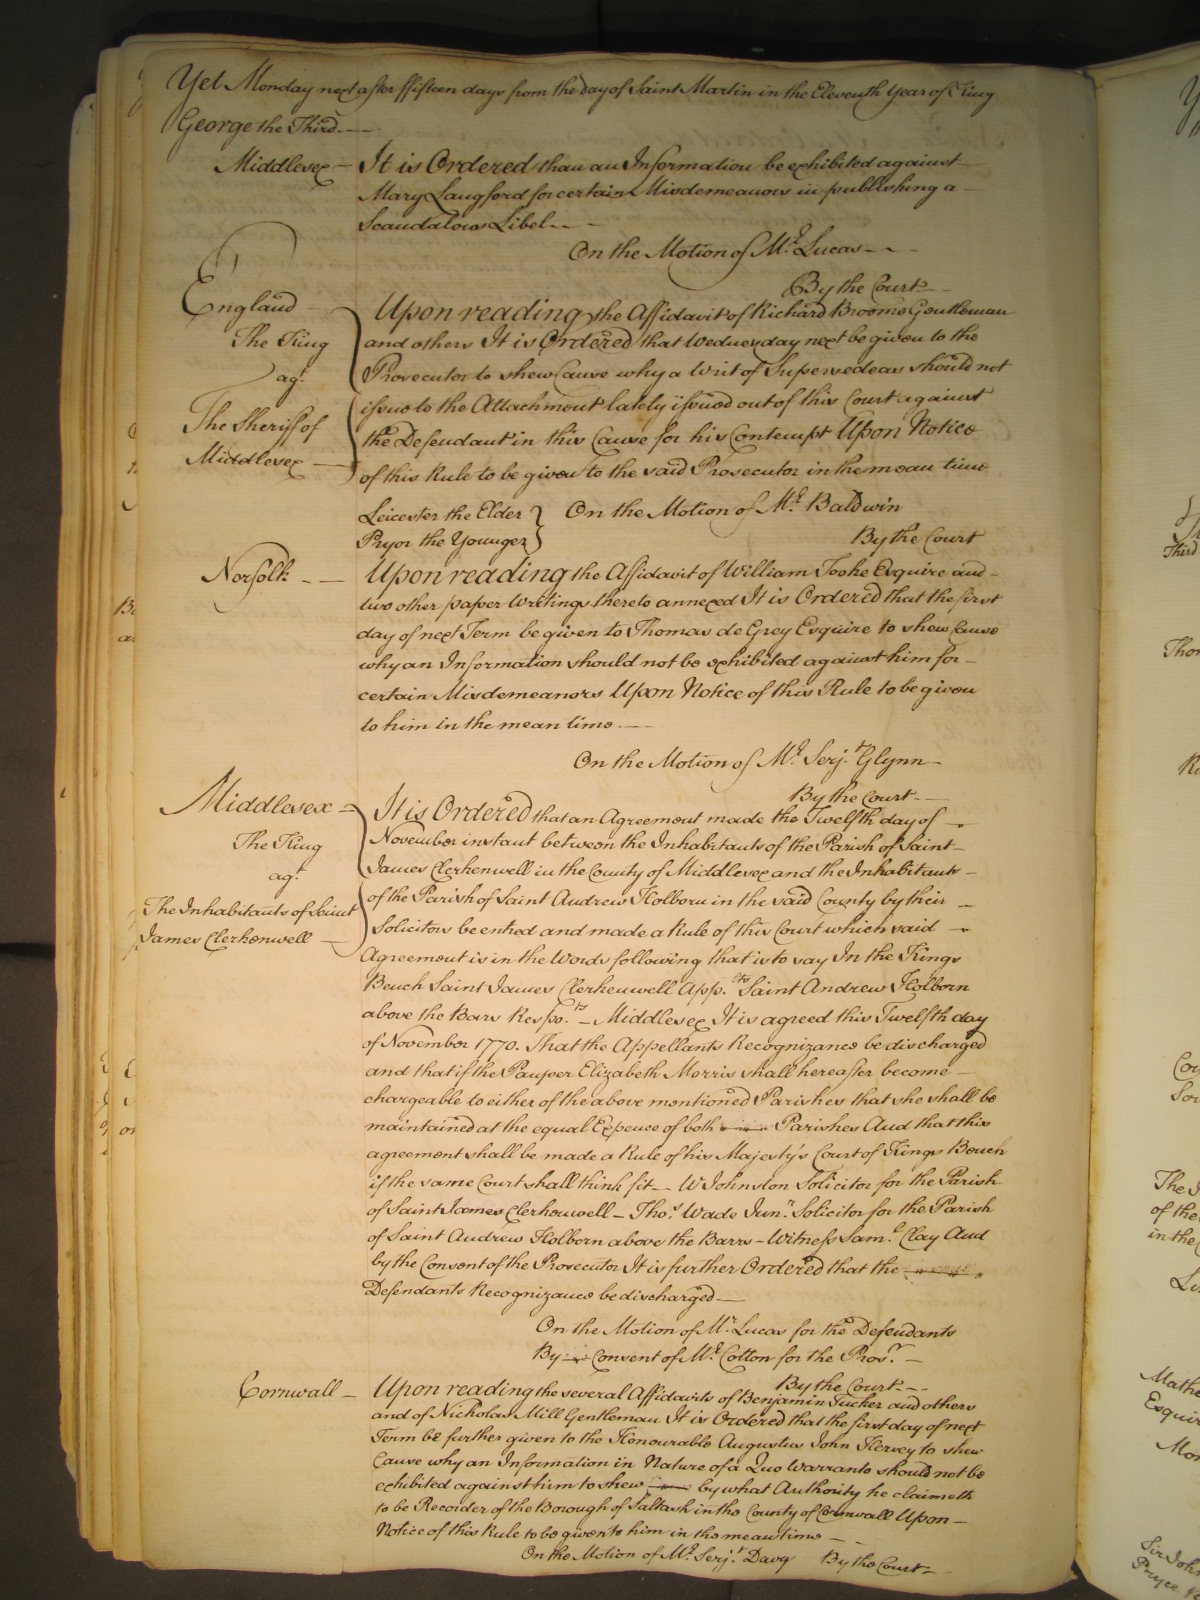 Yet Monday next after ffifteen days from the day of Saint Martin in the Eleventh Year of King
George the Third.—
Middlesex — It is Ordered than an Information be exhibited against
Mary Langford for certain Misdemeanors in publishing a
Scandalous Libel. —
On the Motion of Mr. Lucas —
By the Court —
England — Upon reading the Affidavit of Richard Brooms Gentleman
The King and others It is Ordered that Wednesday next be given to the
agt. Prosecutor to shew Cause why a Writ of Supersedeas should not
The Sheriff of issue to the Attachment lately issued out of this Court against
the Defendant in this Cause for his Contempt Upon Notice
Middlesex — of this Rule to be given to the said Prosecutor in the mean time
Leicester the Elder } On the Motion of Mr. Baldwin
Pryor the Younger } By the Court
Norfolk — Upon reading the Affidavit of William Tooke Esquire and
two other paper Writings thereto annexed It is Ordered that the first
day of next Term be given to Thomas de Grey Esquire to shew Cause
why an Information should not be exhibited against him for
certain Misdemeanors Upon Notice of this Rule to be given
to him in the mean time —
On the Motion of Mr. Serjt. Glynn
By the Court —
Middlesex — It is Ordered that an Agreement made the Twelfth day of
The King November instant between the Inhabitants of the Parish of Saint
agt. James Clerkenwell in the County of Middlesex and the Inhabitants
The Inhabitants of Saint of the Parish of Saint Andrew Holborn in the said County by their
James Clerkenwell — Solicitors be entred and made a Rule of this Court which said
Agreement is in the Words following that is to say In the Kings
Bench Saint James Clerkenwell Appts. Saint Andrew Holborn
above the Bars Respots. — Middlesex It is agreed this Twelfth day
of November 1770. That the Appellants Recognizance be discharged
and that if the Pauper Elizabeth Morris shall hereafter become
chargeable to either of the above mentioned Parishes that she shall be
maintained at the equal Expence of both Parishes And that this
agreement shall be made a Rule of his Majesty's Court of Kings Bench
if the same Court shall think fit — W Johnston Solicitor for the Parish
of Saint James Clerkenwell — Thos. Wade Junr. Solicitor for the Parish
of Saint Andrew Holborn above the Barrs — Witness Saml. Clay And
by the Consent of the Prosecutor It is further Ordered that the
Defendants Recognizance be discharged —
On the Motion of Mr. Lucas for the Defendants
By Consent of Mr. Cotton for the Prosr. —
By the Court —
Cornwall — Upon reading the several Affidavits of Benjamin Tucker and others
and of Nicholas Mill Gentleman It is Ordered that the first day of next
Term be further given to the Honourable Augustus John Hervey to shew
Cause why an Information in Nature of a Quo Warranto should not be
exhibited against him to shew by what Authority he claimeth
to be Recorder of the Borough of Saltash in the County of Cornwall Upon
Notice of this Rule to be given to him in the mean time —
On the Motion of Mr. Serjt. Davy By the Court —
Third